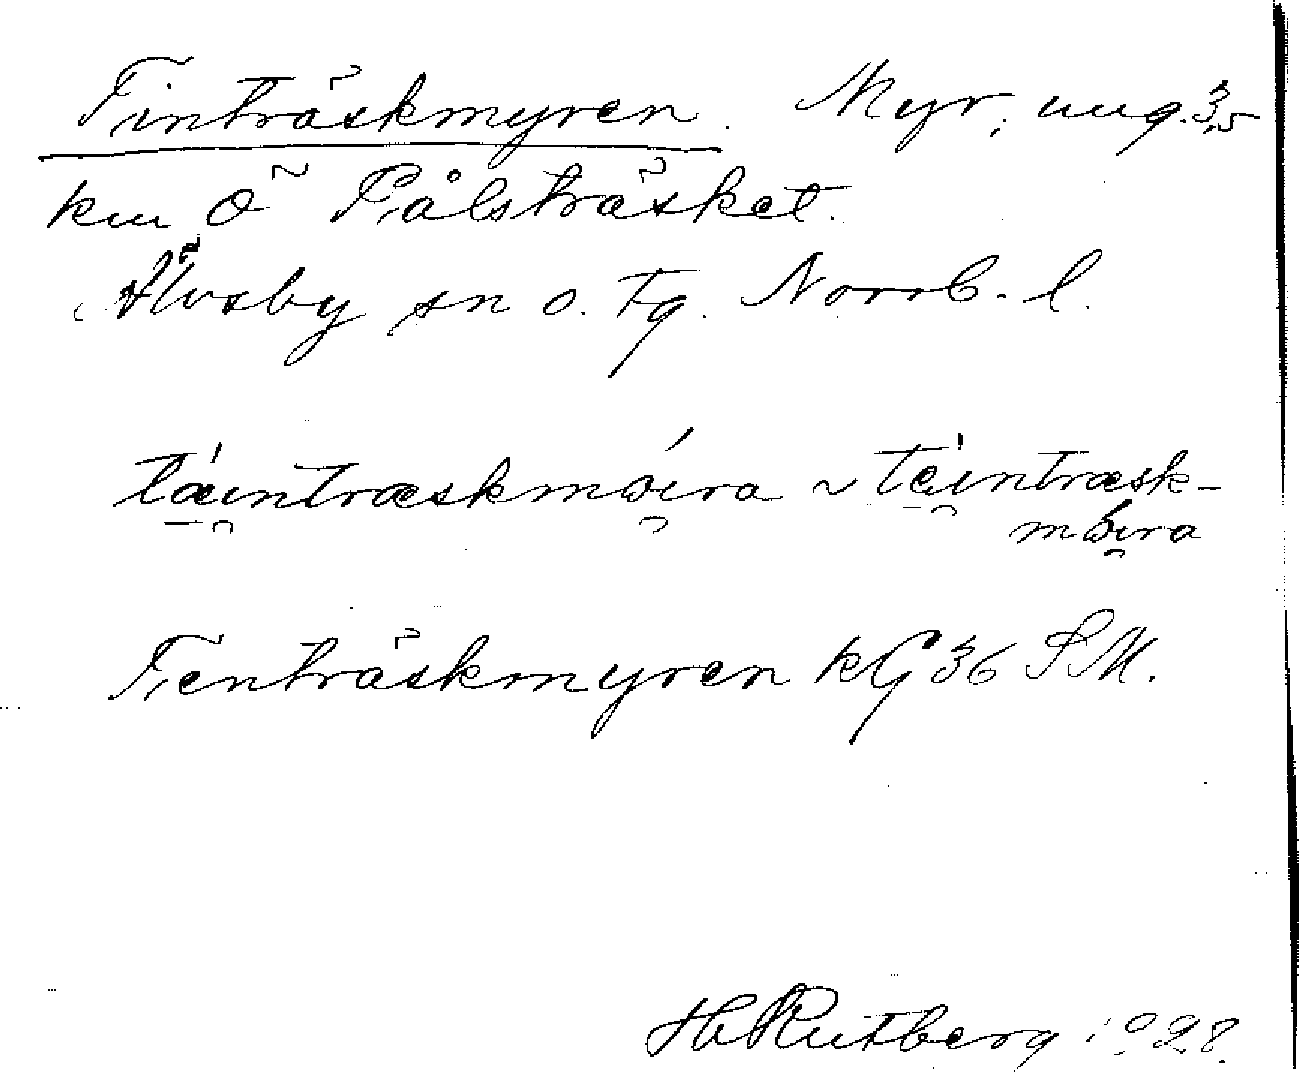 Tinträskmyren. Myr, ung. 3,5
km Ö Pålsträsket.
Älvsby sn o. tg. Norrb. l.
tǽi̯ntræskmói̯ra ~ téi̯ntræsk-
mói̯ra
Tenträskmyren kG 36 SM.
H Rutberg 1928.